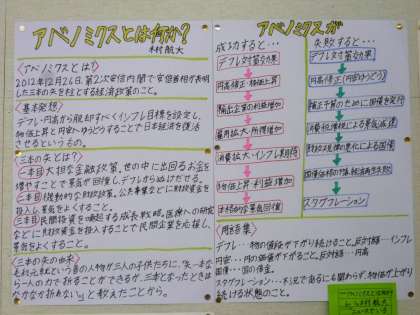 アベノミクスとは何か?
木村航大
<アベノミクスとは?>
2012年12月26日、第2次安倍内閣で安倍首相が表明
した三本の矢を柱とする経済政策のこと。
<基本発想>
デフレ・円高から脱却すべくインフレ目標を設定し、
物価上昇と円安へゆうどうすることで日本経済を復活
させるというもの。
<三本の矢とは?>
一本目 大胆な金融政策。世の中に出回るお金を
増やすことで景気が回復し、デフレからぬけだせる。
二本目 機動的な財政政策。公共事業などに財政資金を
投入し、景気をよくすること。
三本目 民間投資を喚起する成長戦略。医療への研究
などに財政資金を投入することで民間企業を応援し、
景気をよくすること。
<三本の矢の由来>
毛利元就という昔の人物が三人の子供たちに、「矢一本な
ら一人の力で折ることができるが、三本となったときは
なかなか折れない。」と教えたことから。
アベノミクスが
成功すると…
デレフ対策効果
円高修正・物価上昇
輸出企業の利益増加
雇用拡大・所得増加
消費拡大・インフレ期待
物価上昇・利益増加
本格的な景気回復
失敗すると…
デレフ対策効果
円高修正(円安ゆうどう)
消費増税による景気減速
財政規律の悪化による国債
スタグフレーション
<用語集>
デフレ…物の値段が下がり続けること。反対語…インフレ
円安…円の価値が下がること。反対語…円高
国債…国の借金。
スタグフレーション…不況であるにも関わらず、物価が上がり
続ける状態のこと。